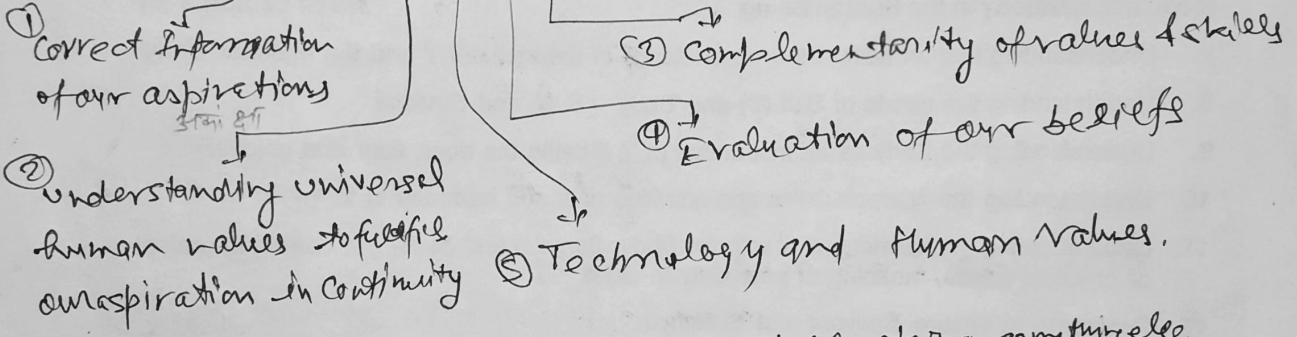 ① Correct Information
of our aspirations
आकांक्षा
② understanding universal
human values to fulfill
our aspiration in continuity
(3) Complementarity of values & skills
④ Evaluation of our beliefs
⑤ Technology and Human values.